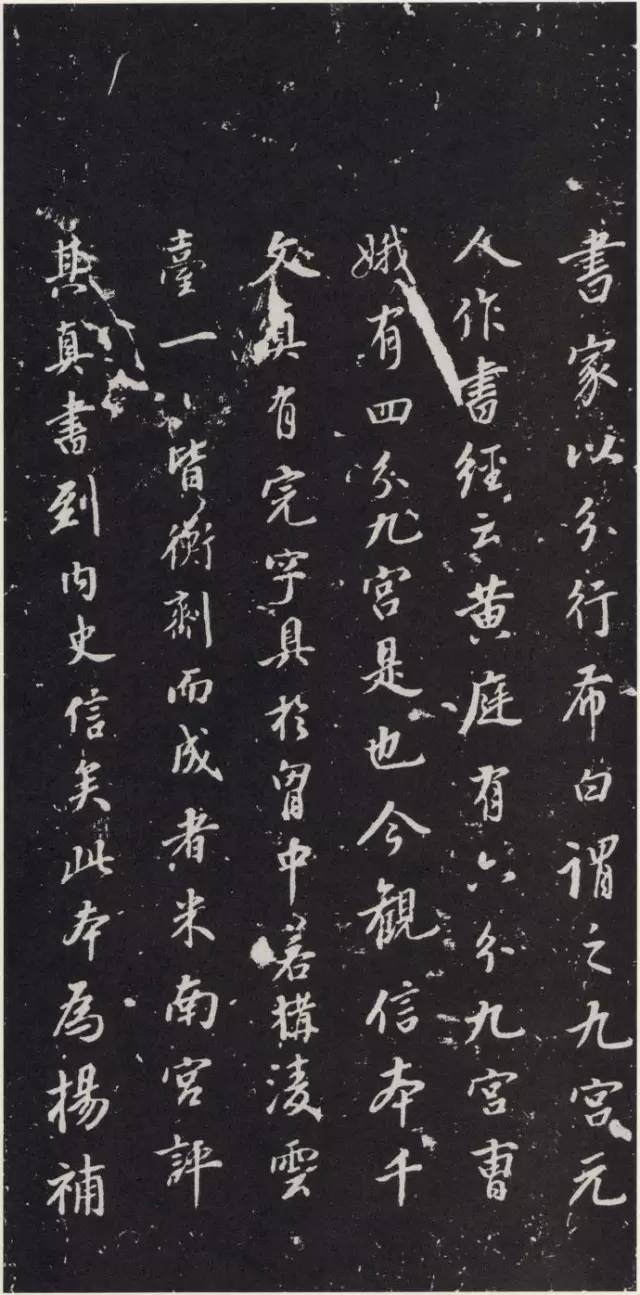 書家以分行布白謂之九宮元
人作書經云黃庭有六分九宮曹
娥有四分九宮是也今觀信本千
文真有完字具於胸中若構凌雲
臺一〻皆衡劑而成者米南宮評
其真書到內史信矣此本為楊補